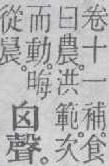 卷十一補食
曰農。洪範次
而動。晦
從晨。
囟聲。